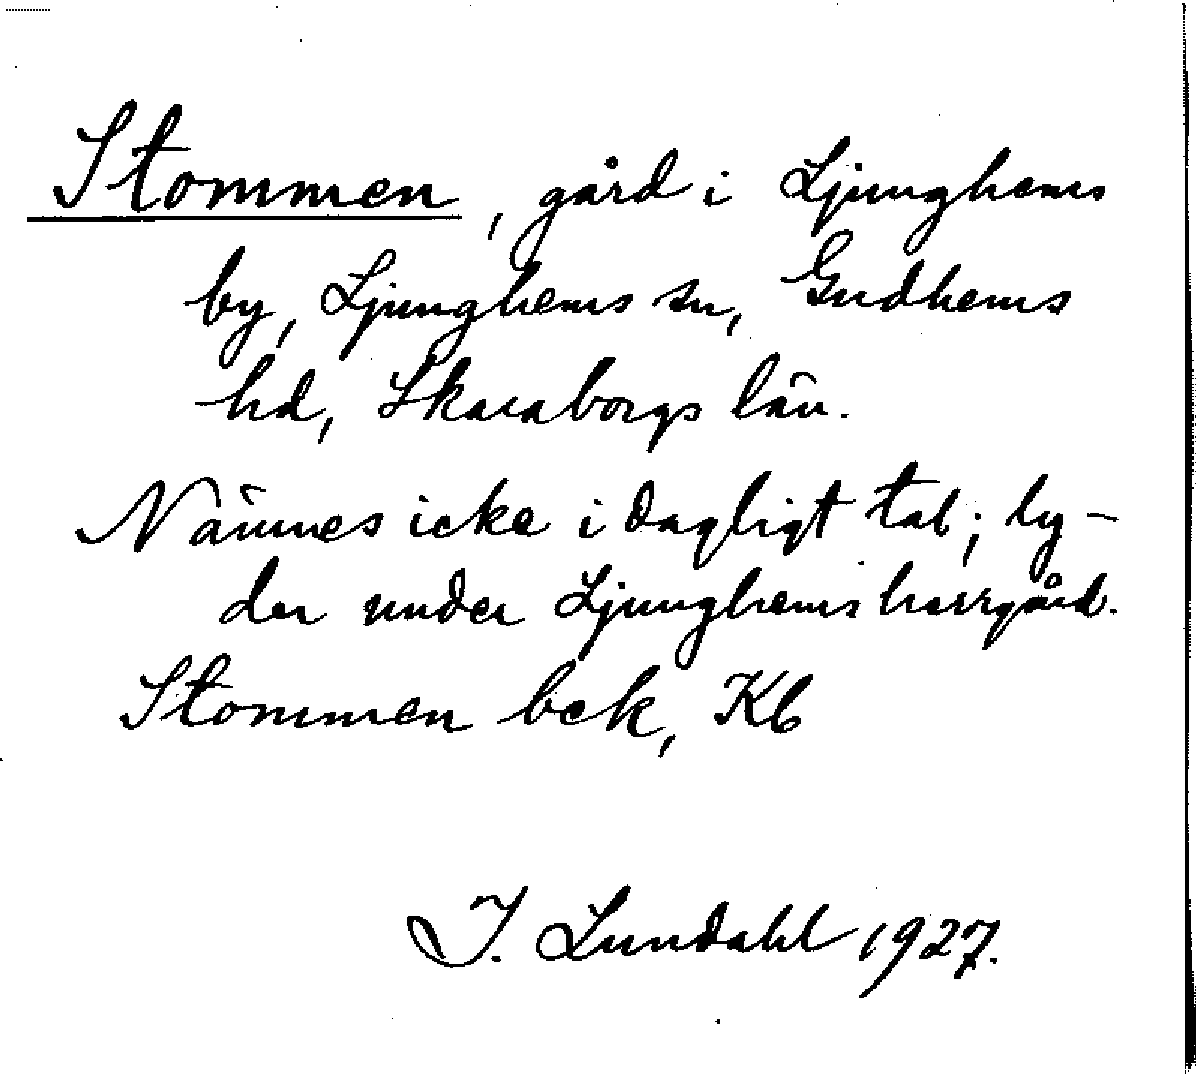 Stommen, gård i Ljunghems
by, Ljunghems sn, Gudhems
hd, Skaraborgs län.
Nämnes icke i dagligt tal; ly-
der under Ljunghems herrgård.
Stommen bek, Kb
I. Lundahl 1927.